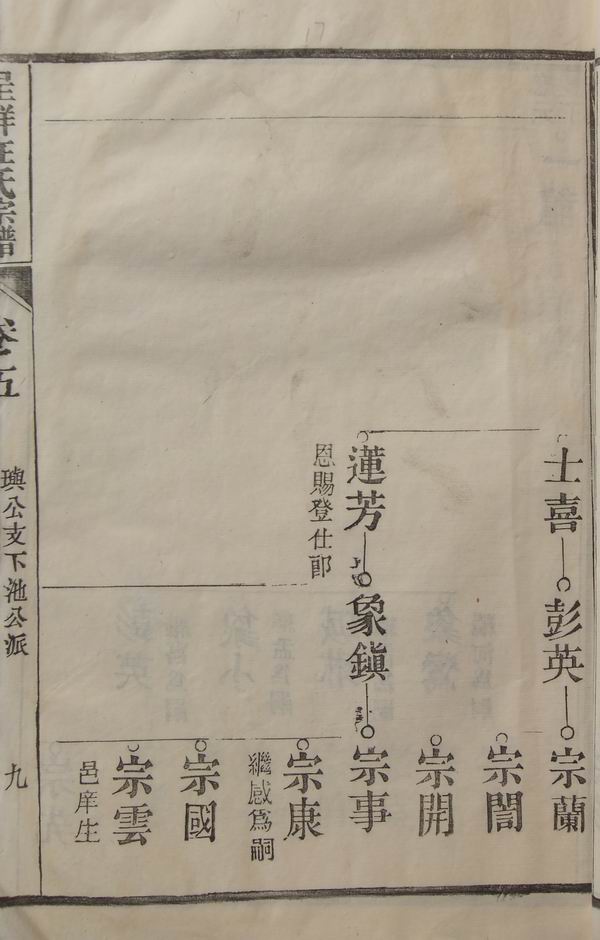 士喜
彭英
宗蘭
宗誾
宗開
蓮芳
恩賜登仕郎
象鎮
宗事
宗康
繼感為嗣
宗國
宗雲
邑庠生
呈祥汪氏宗譜
卷五
璵公支下池公派
九